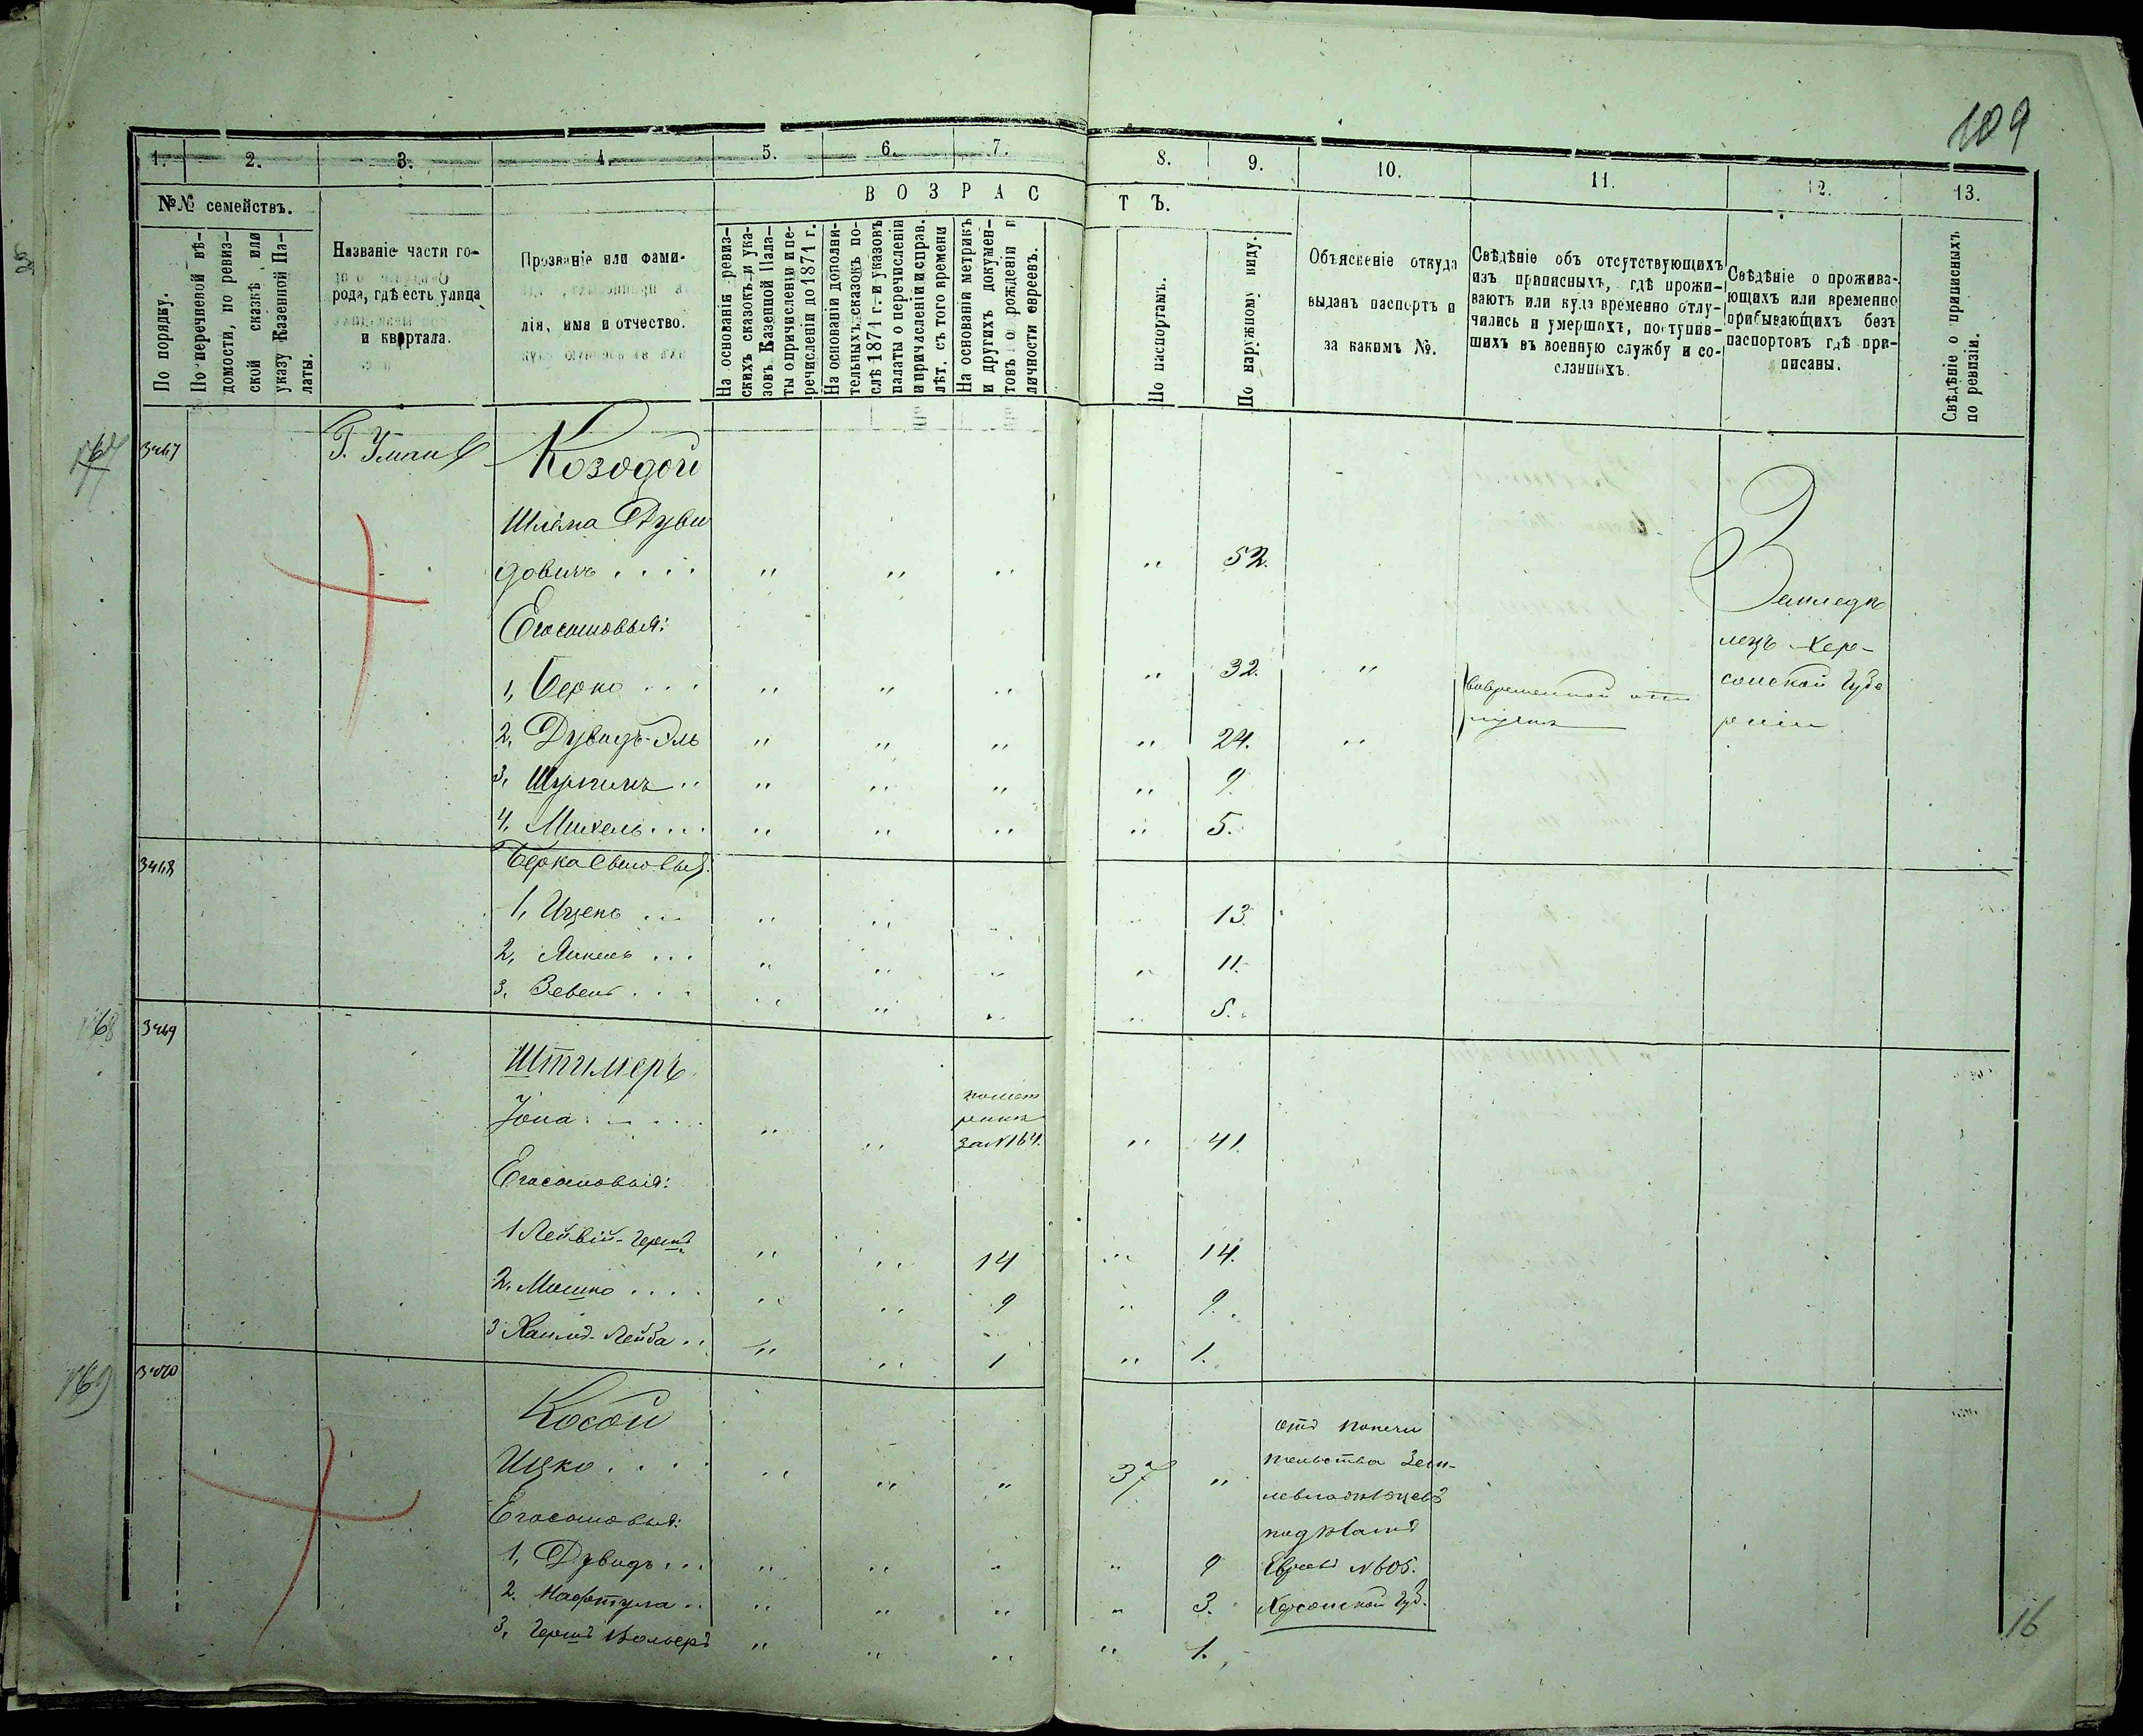 109
1. 2. 3. 4. 5. 6. 7. 8. 9. 10. 11. 12. 13.
№№ семействъ.
В О З Р А С Т Ъ.
По порядку.
По перечневой вѣ-
домости, по ревиз-
ской сказкѣ или
указу Казенной Па-
латы.
Названіе части го-
рода, гдѣ есть улица
и квартала.
Прозваніе или фами-
лія, имя и отчество.
На основаніи ревиз-
скихъ сказокъ и ука-
зовъ Казенной Пала-
ты о причисленіи и пе-
речисленіи до 1871 г.
На основаніи дополни-
тельныхъ сказокъ по-
слѣ 1871 г. и указовъ
палаты о перечисленіи
и причисленіи и справ.
лѣт. съ того времени
На основаніи метрикъ
и другихъ докумен-
товъ о рожденіи и
личности евреевъ.
По паспортамъ.
По наружному виду.
Объясненіе откуда
выданъ паспортъ и
за какимъ №.
Свѣдѣніе объ отсутствующихъ
изъ приписныхъ, гдѣ прожи-
ваютъ или куда временно отлу-
чились и умершихъ, поступив-
шихъ въ военную службу и со-
сланныхъ.
Свѣдѣніе о прожива-
ющихъ или временно
прибывающихъ безъ
паспортовъ гдѣ при-
писаны.
Свѣдѣніе о приписныхъ
по ревизіи.
167 3467 Г. Умань Козодой
Шлёма Дуви
довичъ . . . . " " " " 52.
Его сыновья:
1, Берко . . . " " " " 32. "
2, Дувидъ-Эль " " " " 24. "
3, Шулимъ . . " " " " 9.
4, Михель . . . . " " " " 5.
Земледѣ
лецъ Хер-
сонской Губе
рніи
3468 Берка сыновья:
1, Ицекъ . . . " " " 13
2, Янкель . . . " " " " 11.
3. Зевель . . . " " " " 5.
168 3469 Штимеръ
Іона . . . . . " " за №164. " 41.
Его сыновья:
1 Лейвій-Гершъ " " 14 " 14.
2. Мошко . . . . " " 9 " 9.
3 Хаимъ-Лейба . . " " 1 " 1.
169 3470 Косой
Ицко . . . . " " " 37 "
Его сыновья:
1, Дувидъ . . . " " " " 9
2. Нафтула . . " " " " 3.
3, Гершъ Вольеръ " " " " 1.
отъ попечи
тельства Зем-
левладѣльцевъ
Евреевъ №605.
Херсонской Губ.
16